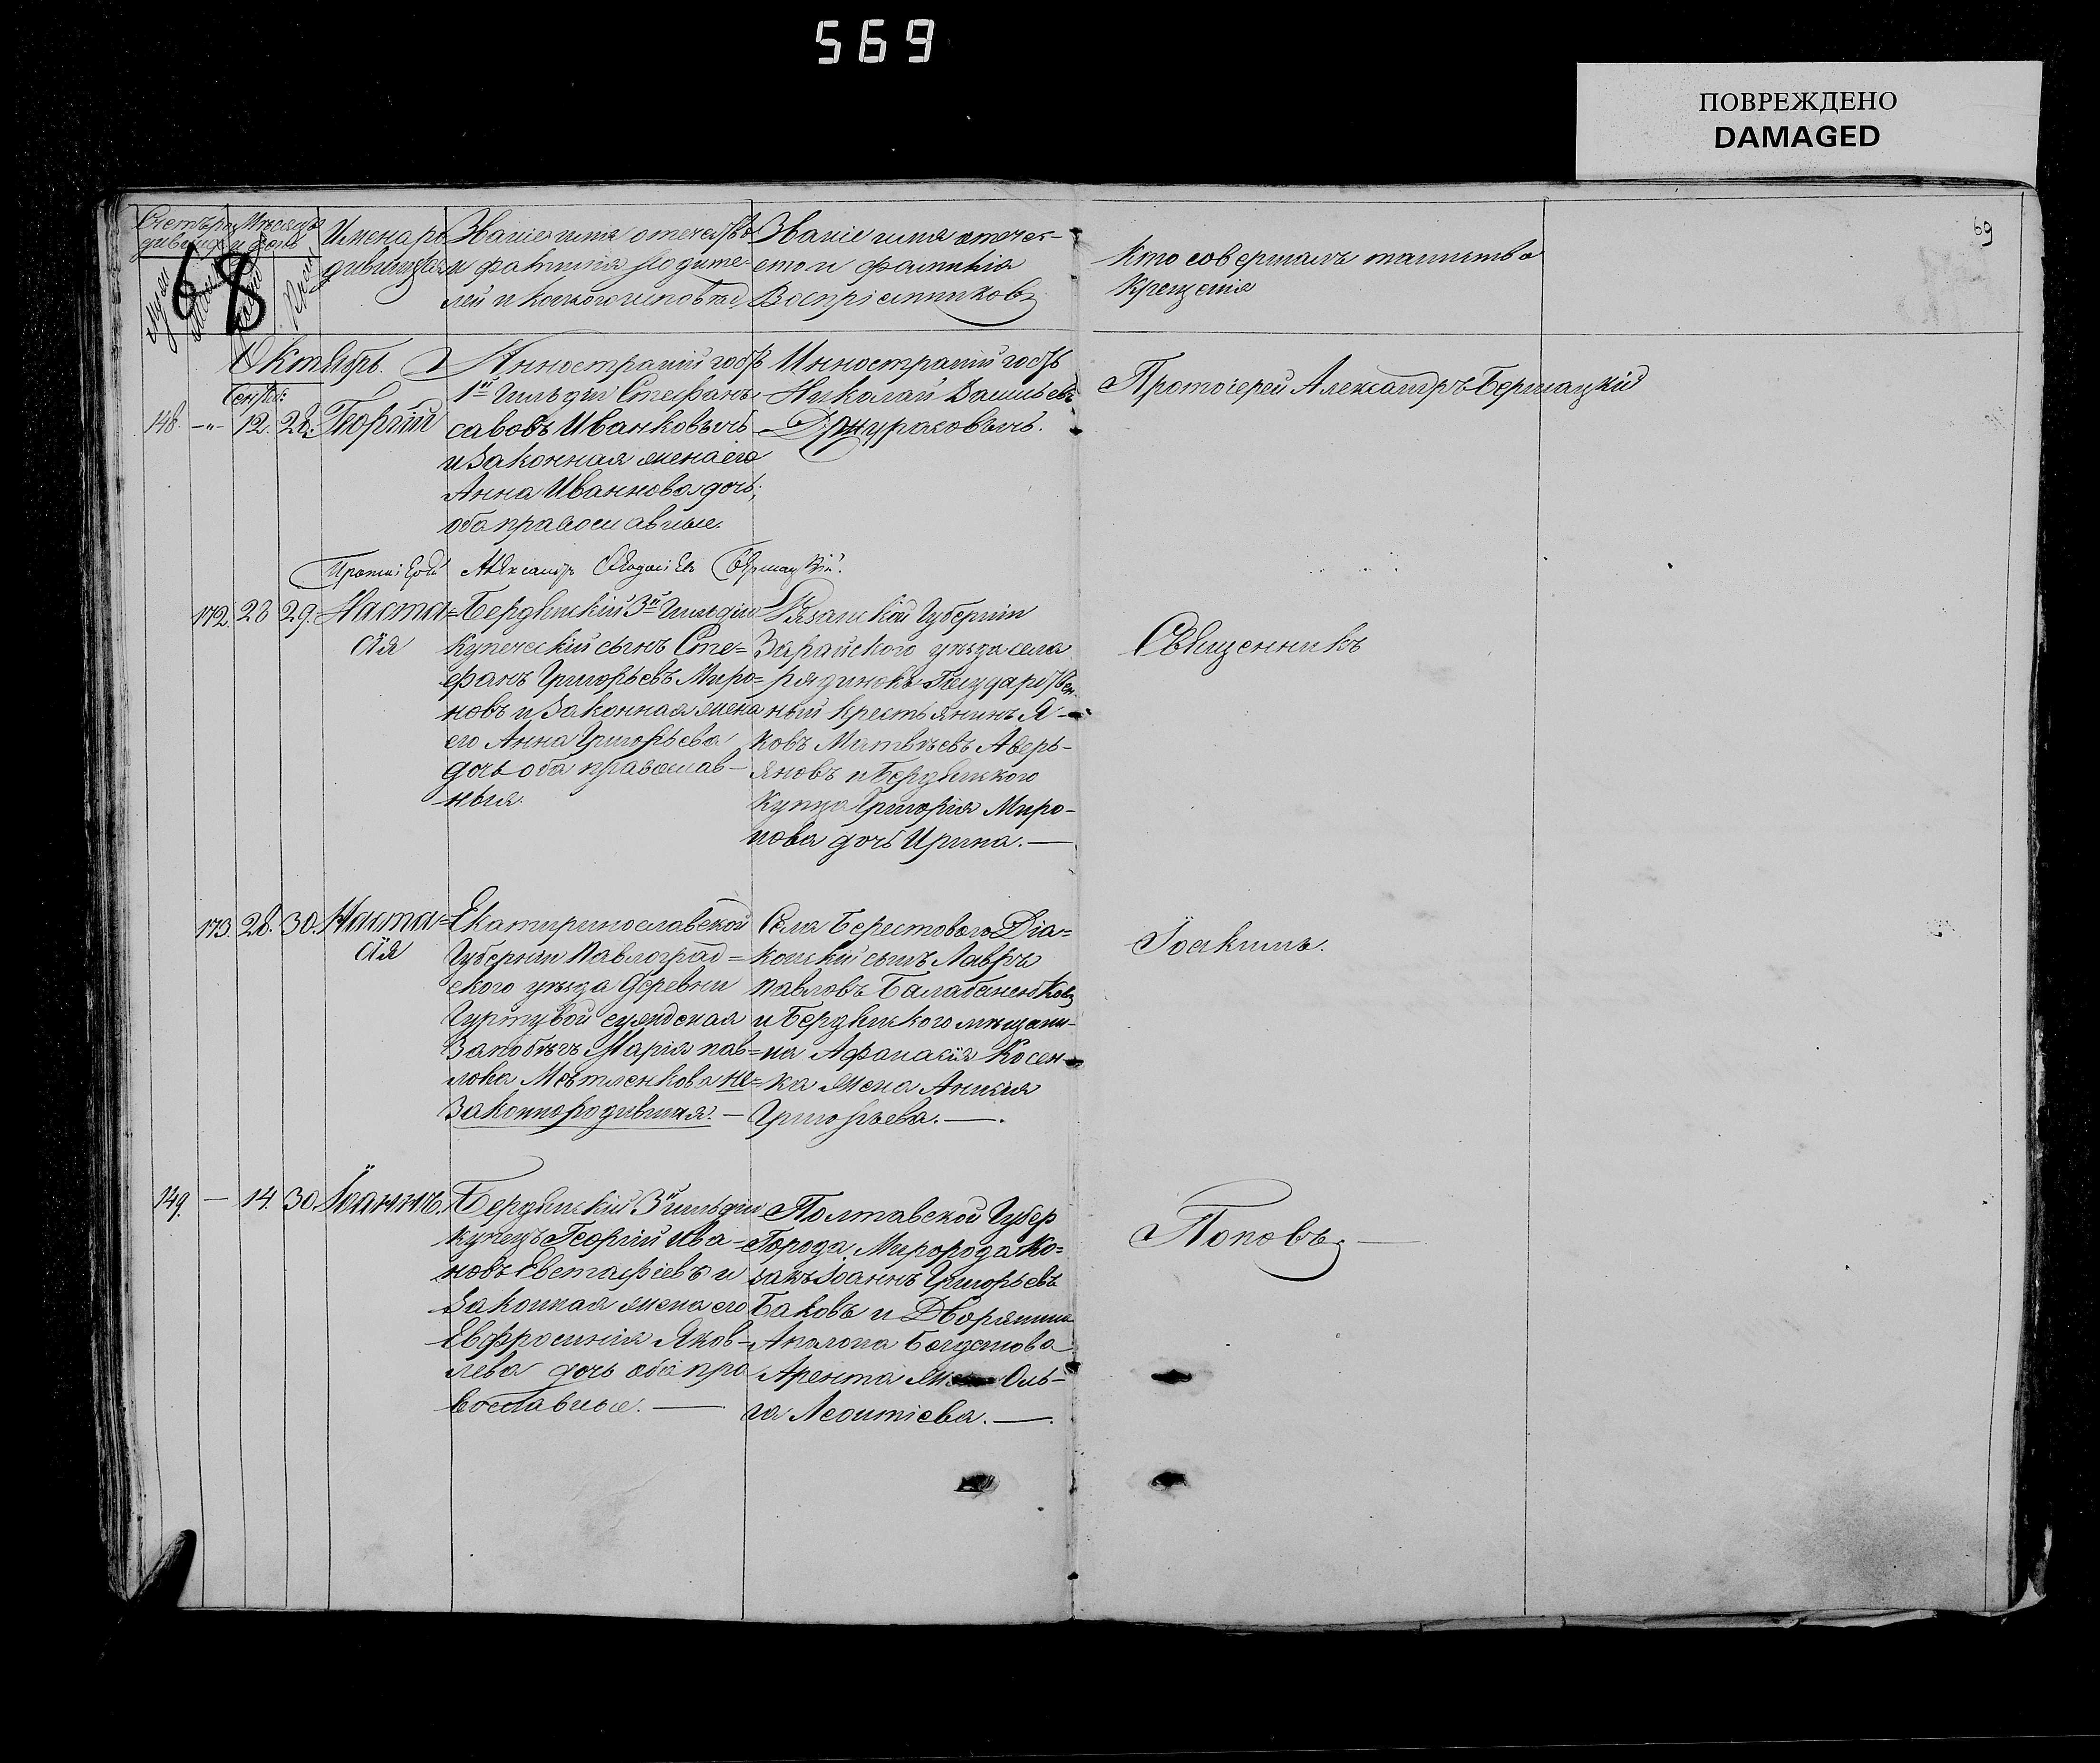 569
ПОВРЕЖДЕНО
DAMAGED
69
68
Счетъ ро
дившихся
Мѣсяцъ
и день
Имена ро
дившихся
Званіе имя отечество
и фамилія родите-
лей и какого исповѣд.
Званіе имя отече-
ство и фамилія
Воспріемниковъ
Кто совершалъ таинство
Крещенія
Октябрь.
Сентяб:
148. -"- 12. 28. Георгій
Инностраный гость
1й гильдіи Стефанъ
Савовъ Иванковычъ
и Законная жена его
Анна Иваннова дочь;
оба православные.
Инностраный гость
Николай Васильевъ
Джураковычъ.
Протоіерей Александръ Бершацкій
Протоіерей Александръ Бершацкій.
172. 28 29. Наста=
сія
Бердянскій 3й гильдіи
Купеческій сынъ Сте=
фанъ Григорьевъ Миро=
новъ и Законная жена
его Анна Григорьева
дочь оба православ-
ныя.
Рязанской Губерніи
Зарайского уѣзда села
Рядиновъ Государствен-
ный Крестьянинъ Я-
ковъ Матвѣевъ Аверь-
яновъ и Бердянского
Купца Григорія Миро-
нова дочь Ирина.—
Священникъ
173. 28. 30. Наста=
сія
Екатеринославской
Губерніи Павлоград=
ского уѣзда деревни
Марія Пав=
лова не=
Законнородившая.—
Села Берестового Діа=
конскій сынъ Лавръ
Павловъ
и Бердянского мѣщани-
на Афанасія Косен-
ка жена
Григорьева.—.
Іоакимъ.
149. — 14. 30. Іоаннъ.
Бердянскій 3й гильдіи
Купецъ Георгій Ива-
новъ Евстафіевъ и
Законная жена его
Евфросинія Яков-
лева дочь оба пра
вославные.—
Полтавской Губер
Города Миророда Ко=
закъ Іоаннъ Григорьевъ
Баковъ и Дворянина
Аполона Богданова
Арента Оль-
га Леонтіева.—.
Поповъ.—